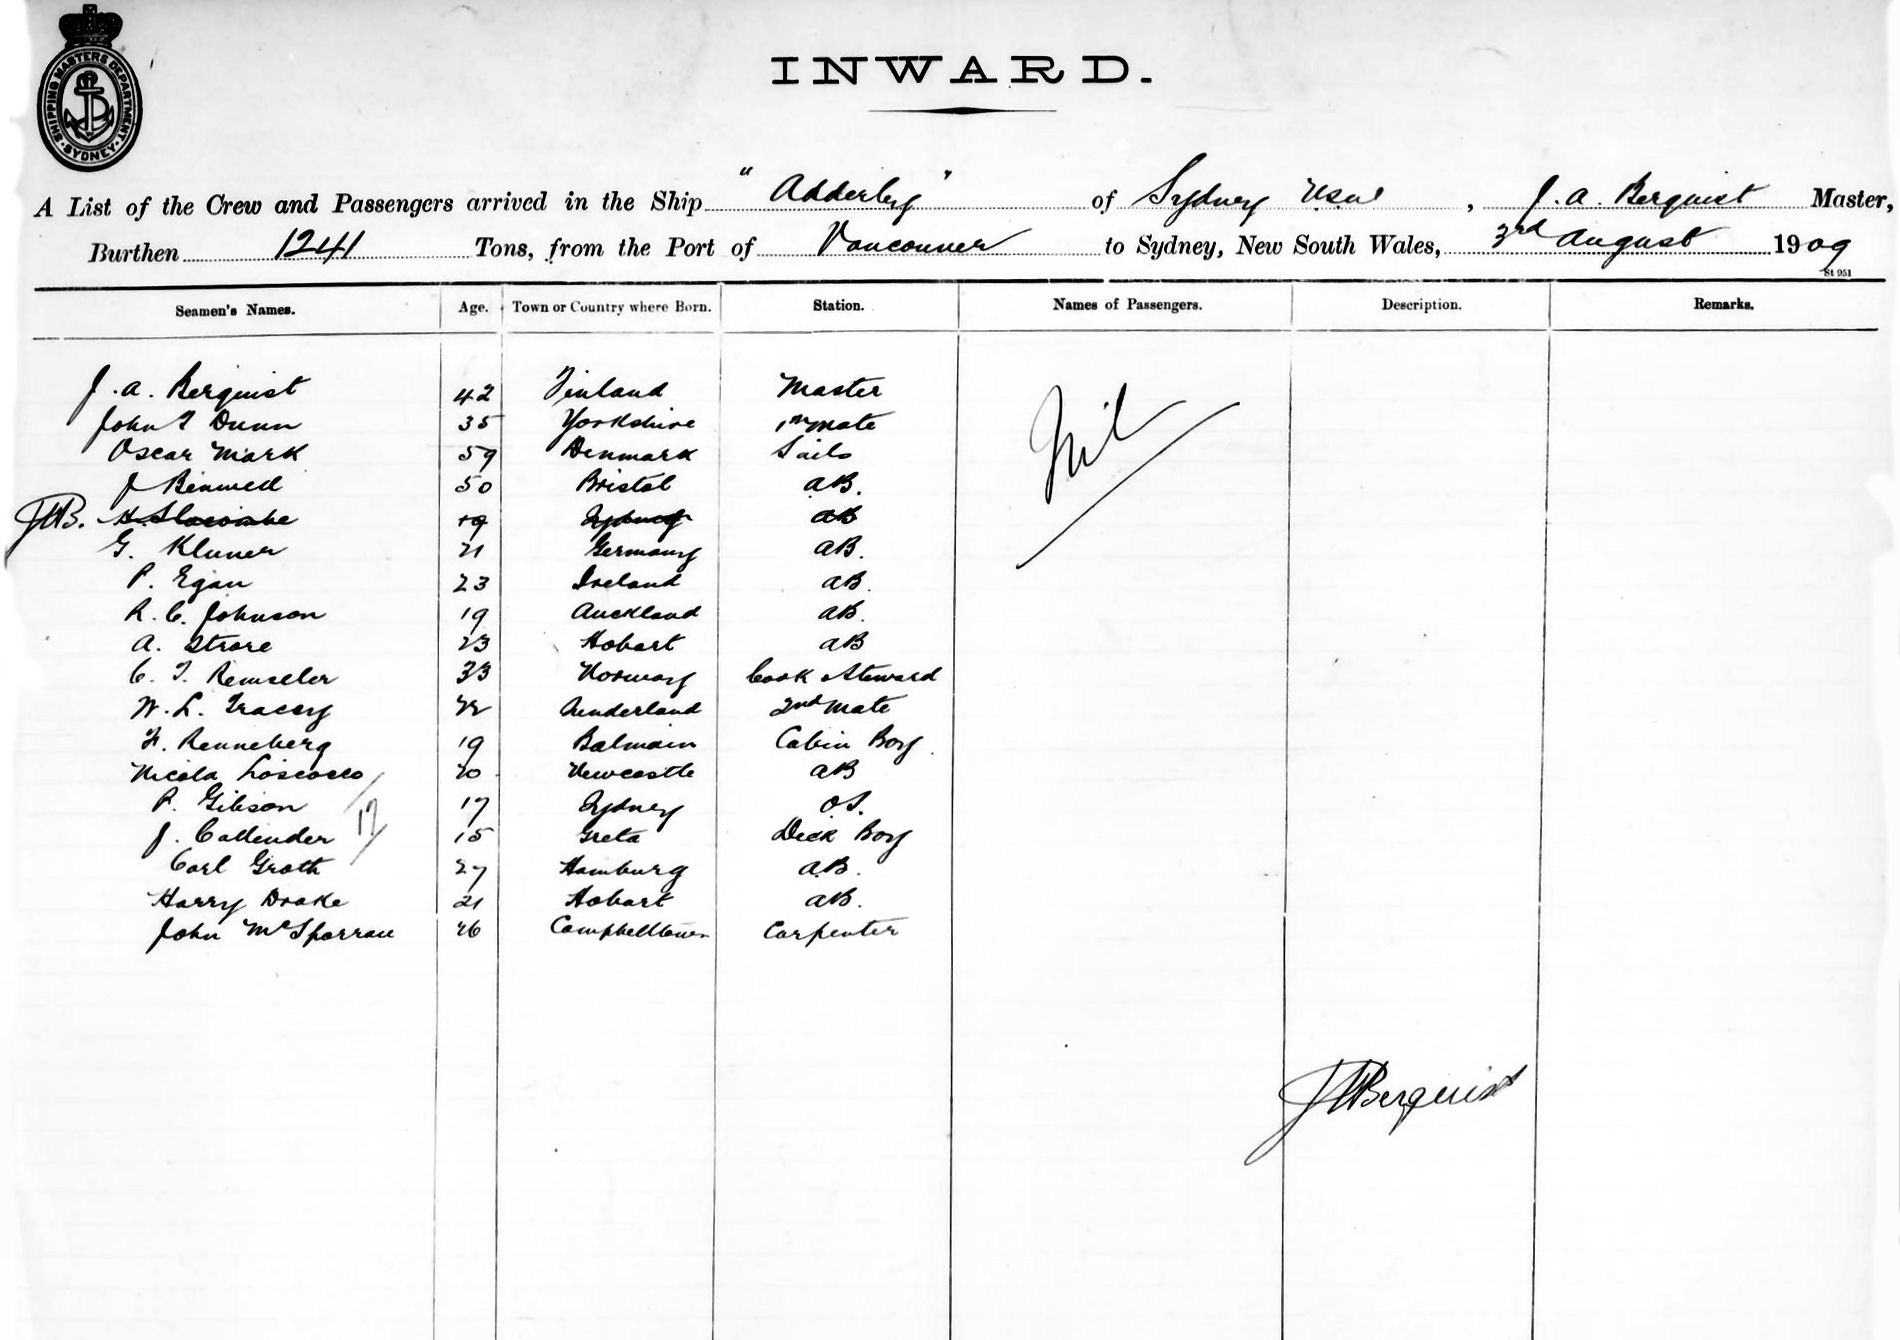 SHIPPING MASTERS DEPARTMENT. SYDNEY.
INWARD.
A List of the Crew and Passengers arrived in the Ship "Adderley" of Sydney NSW, J. A. Berquist Master,
Burthen 1241 Tons, from the Port of Vancouver to Sydney, New South Wales, 3rd August 1909
St 951
Seamen's Names. Age. Town or Country where Born. Station. Names of Passengers. Description. Remarks.
J. A. Berquist 42 Finland Master Nil
John T Dunn 35 Yorkshire 1st Mate
Oscar Mark 59 Denmark Sails
J Benwell 50 Bristol AB.
JAB. H. Slocombe 19 Sydney AB
G. Kluner 21 Germany AB.
P. Egan 23 Ireland AB.
R. C. Johnson 19 Auckland AB.
A. Strore 23 Hobart AB
C. T. Remseler 33 Norway Cook Steward
W. L. Tracey 22 Sunderland 2nd Mate
H. Renneberg 19 Balmain Cabin Boy
Nicola Loscocco 20 Newcastle AB
P. Gibson 17 Sydney OS.
J. Callender 15 Greta Deck Boy
17
Carl Groth 27 Hamburg AB.
Harry Drake 21 Hobart AB.
John McSporran 26 Campbelltown Carpenter
JABerquist